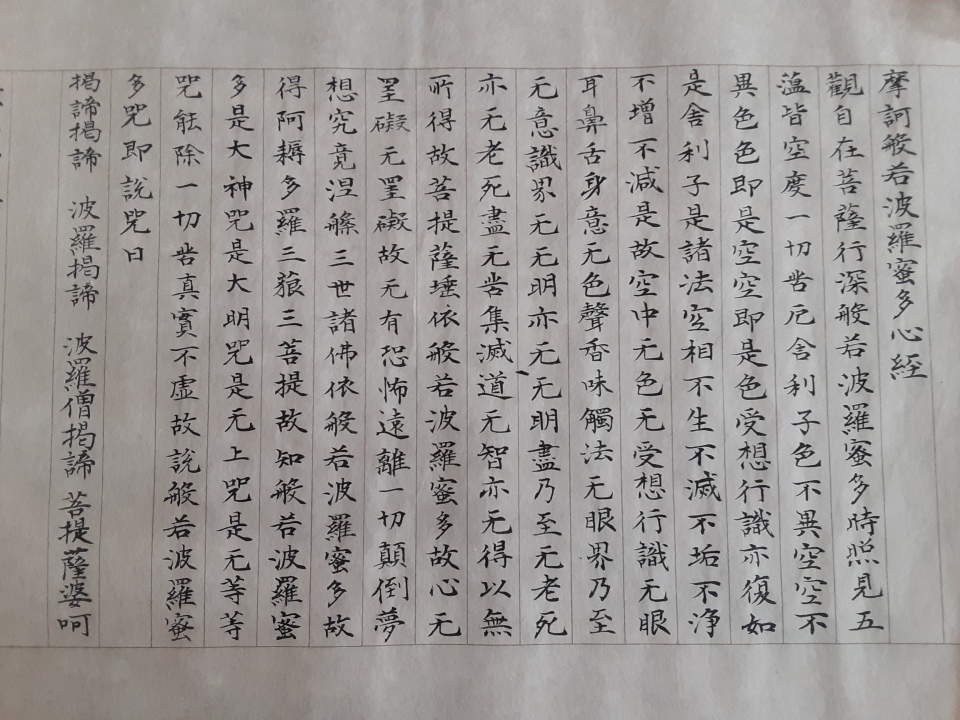 摩訶般若波羅蜜多心経
觀自在菩薩行深般若波羅蜜多時照見五
薀皆空度一切苦厄舍利子色不異空空不
異色色即是空空即是色受想行識亦復如
是舍利子是諸法空相不生不滅不垢不浄
不增不減是故空中无色无受想行識无眼
耳鼻舌身意无色聲香味觸法无眼界乃至
无意識界无无明亦无无明盡乃至无老死
亦无老死盡无苦集滅道无智亦无得以無
所得故菩提薩埵依般若波羅蜜多故心无
罣礙无罣礙故无有恐怖遠離一切顛倒夢
想究竟涅槃三世諸佛依般若波羅蜜多故
得阿耨多羅三藐三菩提故知般若波羅蜜
多是大神咒是大明咒是无上咒是无等等
咒能除一切苦真實不虛故說般若波羅蜜
多咒即說咒曰
揭諦揭諦 波羅揭諦 波羅僧揭諦 菩提薩婆呵